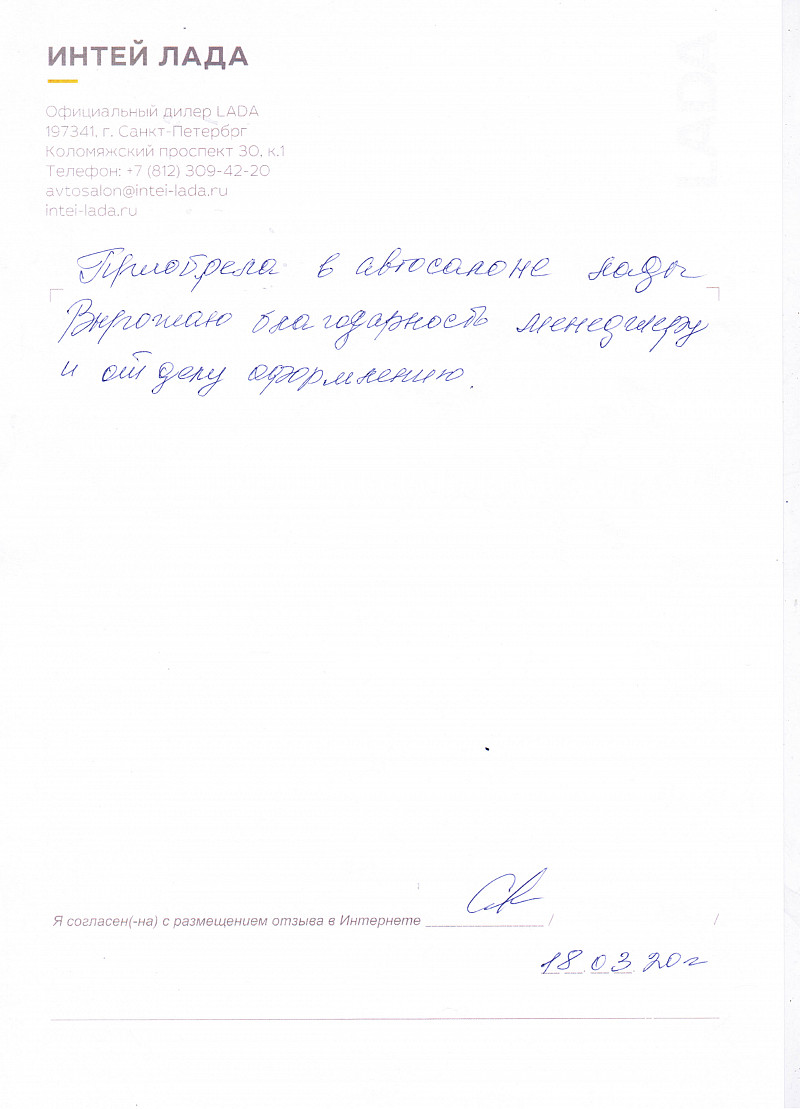 ИНТЕЙ ЛАДА
Официальный дилер LADA
197341, г. Санкт-Петербрг
Коломяжский проспект 30, к.1
Телефон: +7 (812) 309-42-20
avtosalon@intei-lada.ru
intei-lada.ru
LADA
Приобрела в автосалоне лады
Выражаю благодарность менеджеру
и отделу оформлению.
Я согласен(-на) с размещением отзыва в Интернете / /
18.03.20г